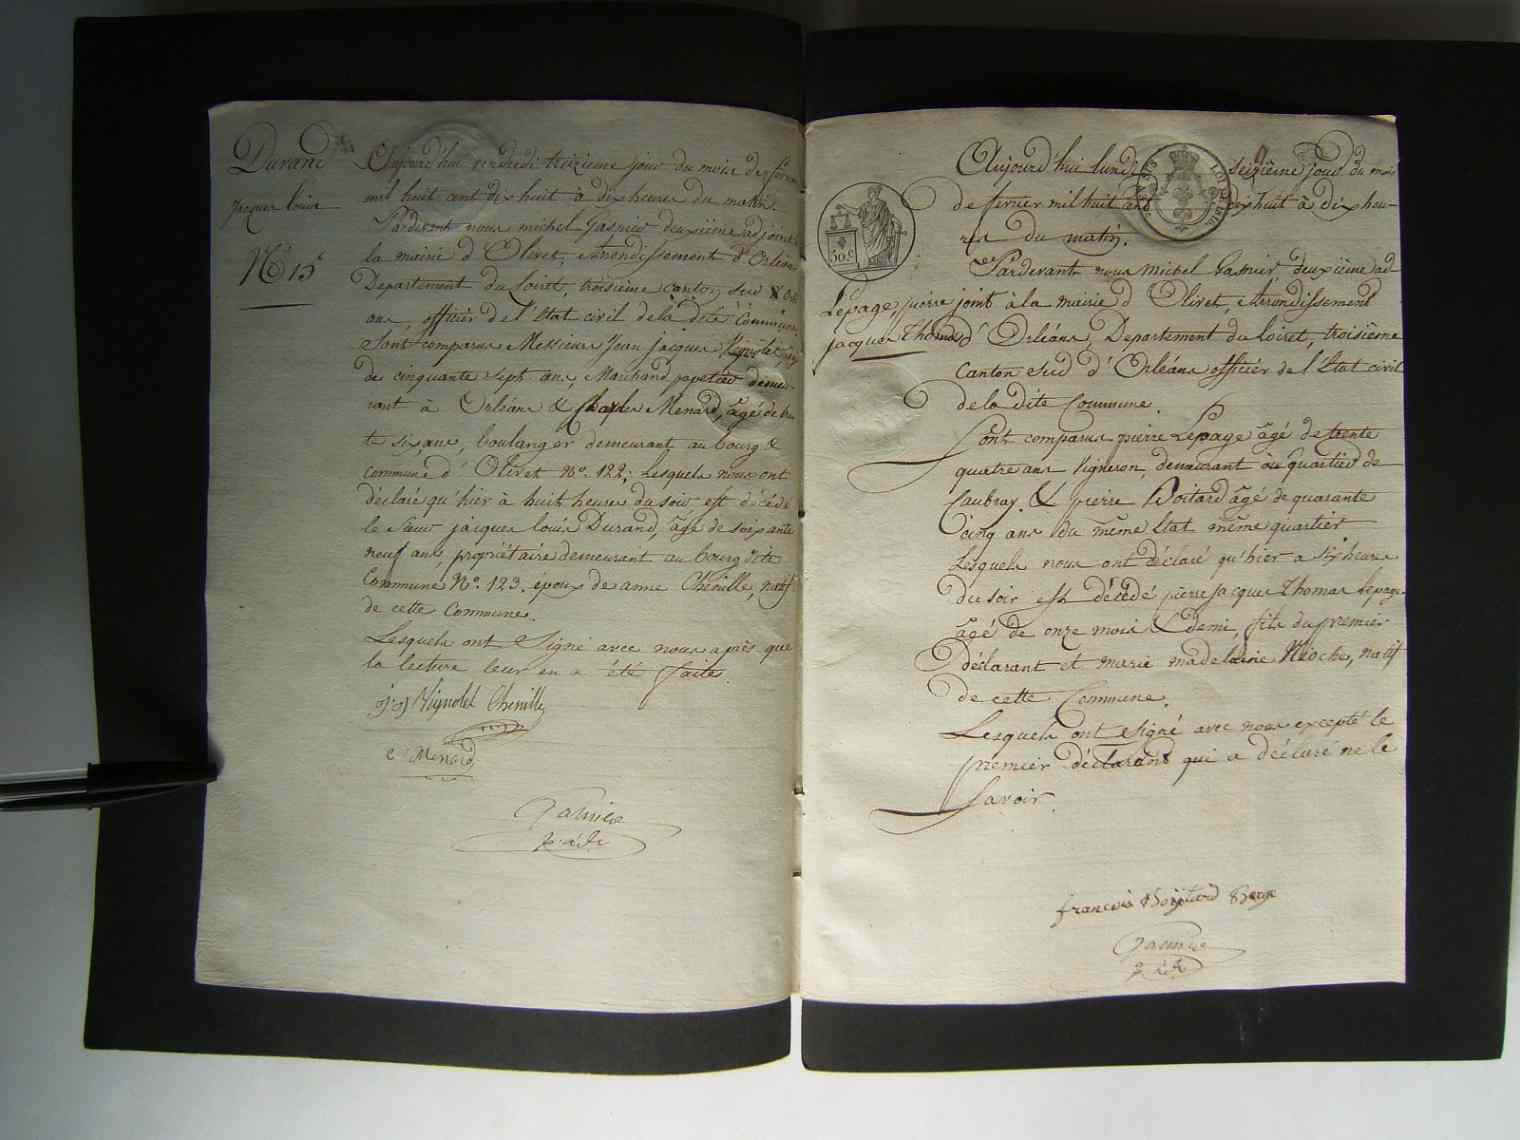 Durand
jacques louis
N.º 15
Aujourd'hui vendredi treizieme jour du mois de février
mil huit cent dix huit à dix heures du matin.
Pardevant nous michel Gasnier deuxième adjoint
la mairie d'Olivet, Arrondissement d'Orléans
Departement du Loiret, troisieme canton sud d'Orlé
ans, officier de l'Etat civil de la dite Commune.
Sont comparus Messieurs Jean jacques Vignolet, agé
de cinquante sept ans, Marchand papetier demeu-
rant à Orléans & Charles Menard, âgé de tren
te six ans, boulanger demeurant au bourg &
commune d'Olivet N.º 122; Lesquels nous ont
déclaré qu'hier à huit heures du soir est décédé
le Sieur jacques louis Durand, âgé de soixante
neuf ans, propriétaire demeurant au bourg & dte
Commune N.º 123. epoux de anne Chenille, natif
de cette Commune.
Lesquels ont Signé avec nous après que
la lecture leur en a été faite.
j. j. Vignolet Chenille
c Menard
Gasnier
2e adjt
Aujourd'hui lundi seizième jour du mois
de fevrier mil huit cent dix huit à dix heu-
res du matin.
50 c.
Pardevant nous michel Gasnier deuxième ad
Lepage, pierre
jacques Thomas
joint à la mairie d'Olivet, Arrondissement
d'Orléans, Departement du Loiret, troisième
Canton sud d'Orléans officier de l'Etat civil
de la dite Commune.
Sont comparus pierre Lepage âgé de trente
quatre ans Vigneron, demeurant au quartier de
Caubray & pierre Poitard âgé de quarante
cinq ans du même Etat même quartier
Lesquels nous ont déclaré qu'hier a six heures
du soir est décédé pierre jacques Thomas Lepage
âgé de onze mois & demi, fils du premier
Déclarant et marie madelaine Rioche, natif
de cette Commune.
Lesquels ont Signé avec nous excepté le
premier déclarant qui a déclaré ne le
Savoir.
Gasnier
2e adjt